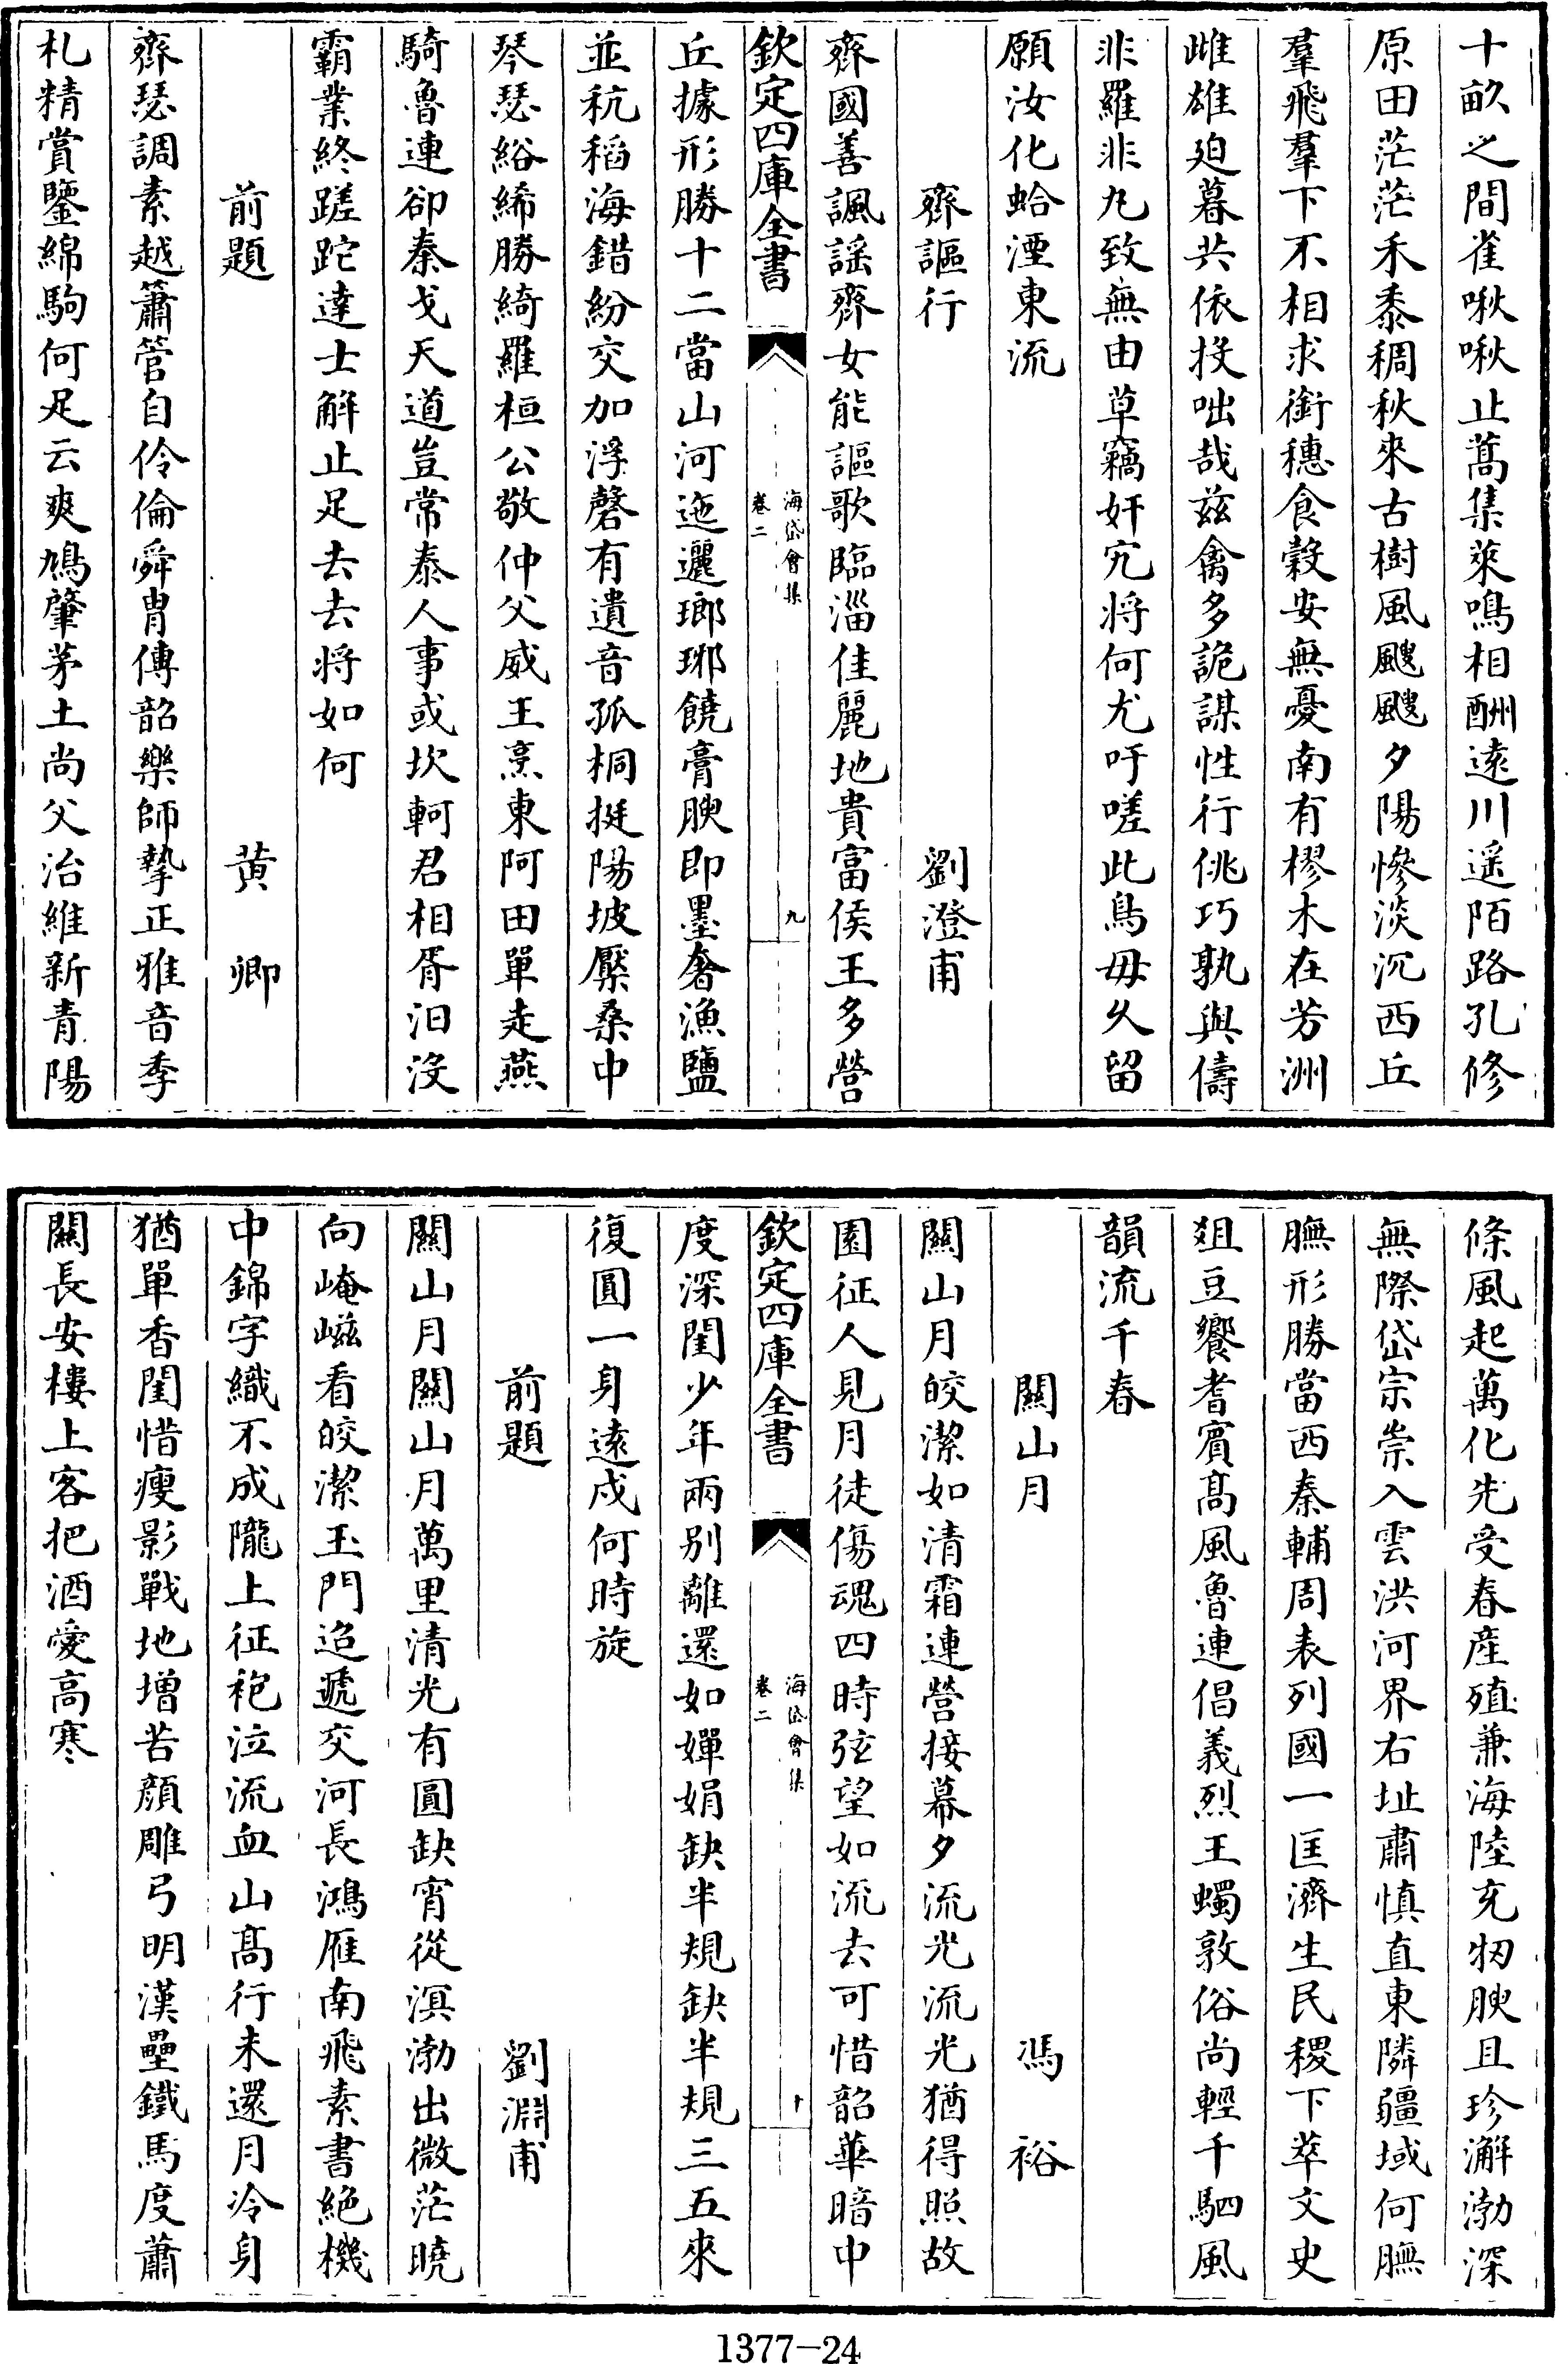 十畝之間雀啾啾止蒿集萊鳴相酬逺川遥陌路孔修
原田茫茫禾黍稠秋來古樹風颼颼夕陽慘淡沉西丘
羣飛羣下不相求銜穗食榖安無憂南有樛木在芳洲
雌雄廹暮共依投咄哉兹禽多詭謀性行佻巧孰與儔
非羅非丸致無由草竊奸宄将何尤吁嗟此鳥毋乆留
願汝化蛤湮東流
齊謳行　劉澄甫
齊國善諷謡齊女能謳歌臨淄佳麗地貴富侯王多營
欽定四庫全書
海岱會集
卷二
九
丘據形勝十二當山河迤邐瑯琊饒膏腴即墨奢漁鹽
並秔稻海錯紛交加浮磬有遺音孤桐挺陽坡檿桑中
琴瑟綌絺勝綺羅桓公敬仲父威王烹東阿田單走燕
騎魯連卻秦戈天道豈常泰人事或坎軻君相胥汩没
霸業終蹉跎達士解止足去去将如何
前題　黄卿
齊瑟調素越簫管自伶倫舜胄傳韶樂師摯正雅音季
札精賞鑒綿駒何足云爽鳩肇茅土尚父治維新青陽
條風起萬化先受春産殖兼海陸充牣腴且珍澥渤深
無際岱宗崇入雲洪河界右址肅慎直東隣疆域何膴
膴形勝當西秦輔周表列國一匡濟生民稷下萃文史
爼豆饗耆賓髙風魯連倡義烈王蠋敦俗尚輕千駟風
韻流千春
關山月　馮裕
關山月皎潔如清霜連營接幕夕流光流光猶得照故
園征人見月徒傷魂四時弦望如流去可惜韶華暗中
欽定四庫全書
海岱會集
卷二
十
度深閨少年兩别離還如嬋娟缺半規缺半規三五來
復圓一身逺戍何時旋
前題　劉淵甫
關山月關山月萬里清光有圓缺宵從溟渤出微茫曉
向崦嵫看皎潔玉門迢遞交河長鴻雁南飛素書絶機
中錦字織不成隴上征袍泣流血山髙行未還月冷身
猶單香閨惜瘦影戰地增苦顔雕弓明漢壘鐵馬度蕭
關長安樓上客把酒愛高寒
1377—24